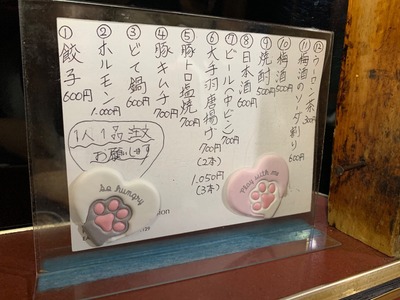 ① 餃子 600円
② ホルモン 1.000円
③ どて鍋 600円
④ 豚キムチ 700円
⑤ 豚トロ塩焼 700円
⑥ 大手羽唐揚げ 700円(2本) 1.050円(3本)
⑦ ビール(中ビン) 700円
⑧ 日本酒 600円
⑨ 焼酎 500円
⑩ 梅酒 500円
⑪ 梅酒のソーダ割り 600円
⑫ ウーロン茶 300円
1人1品注文
お願いします
So hungry
Play with me